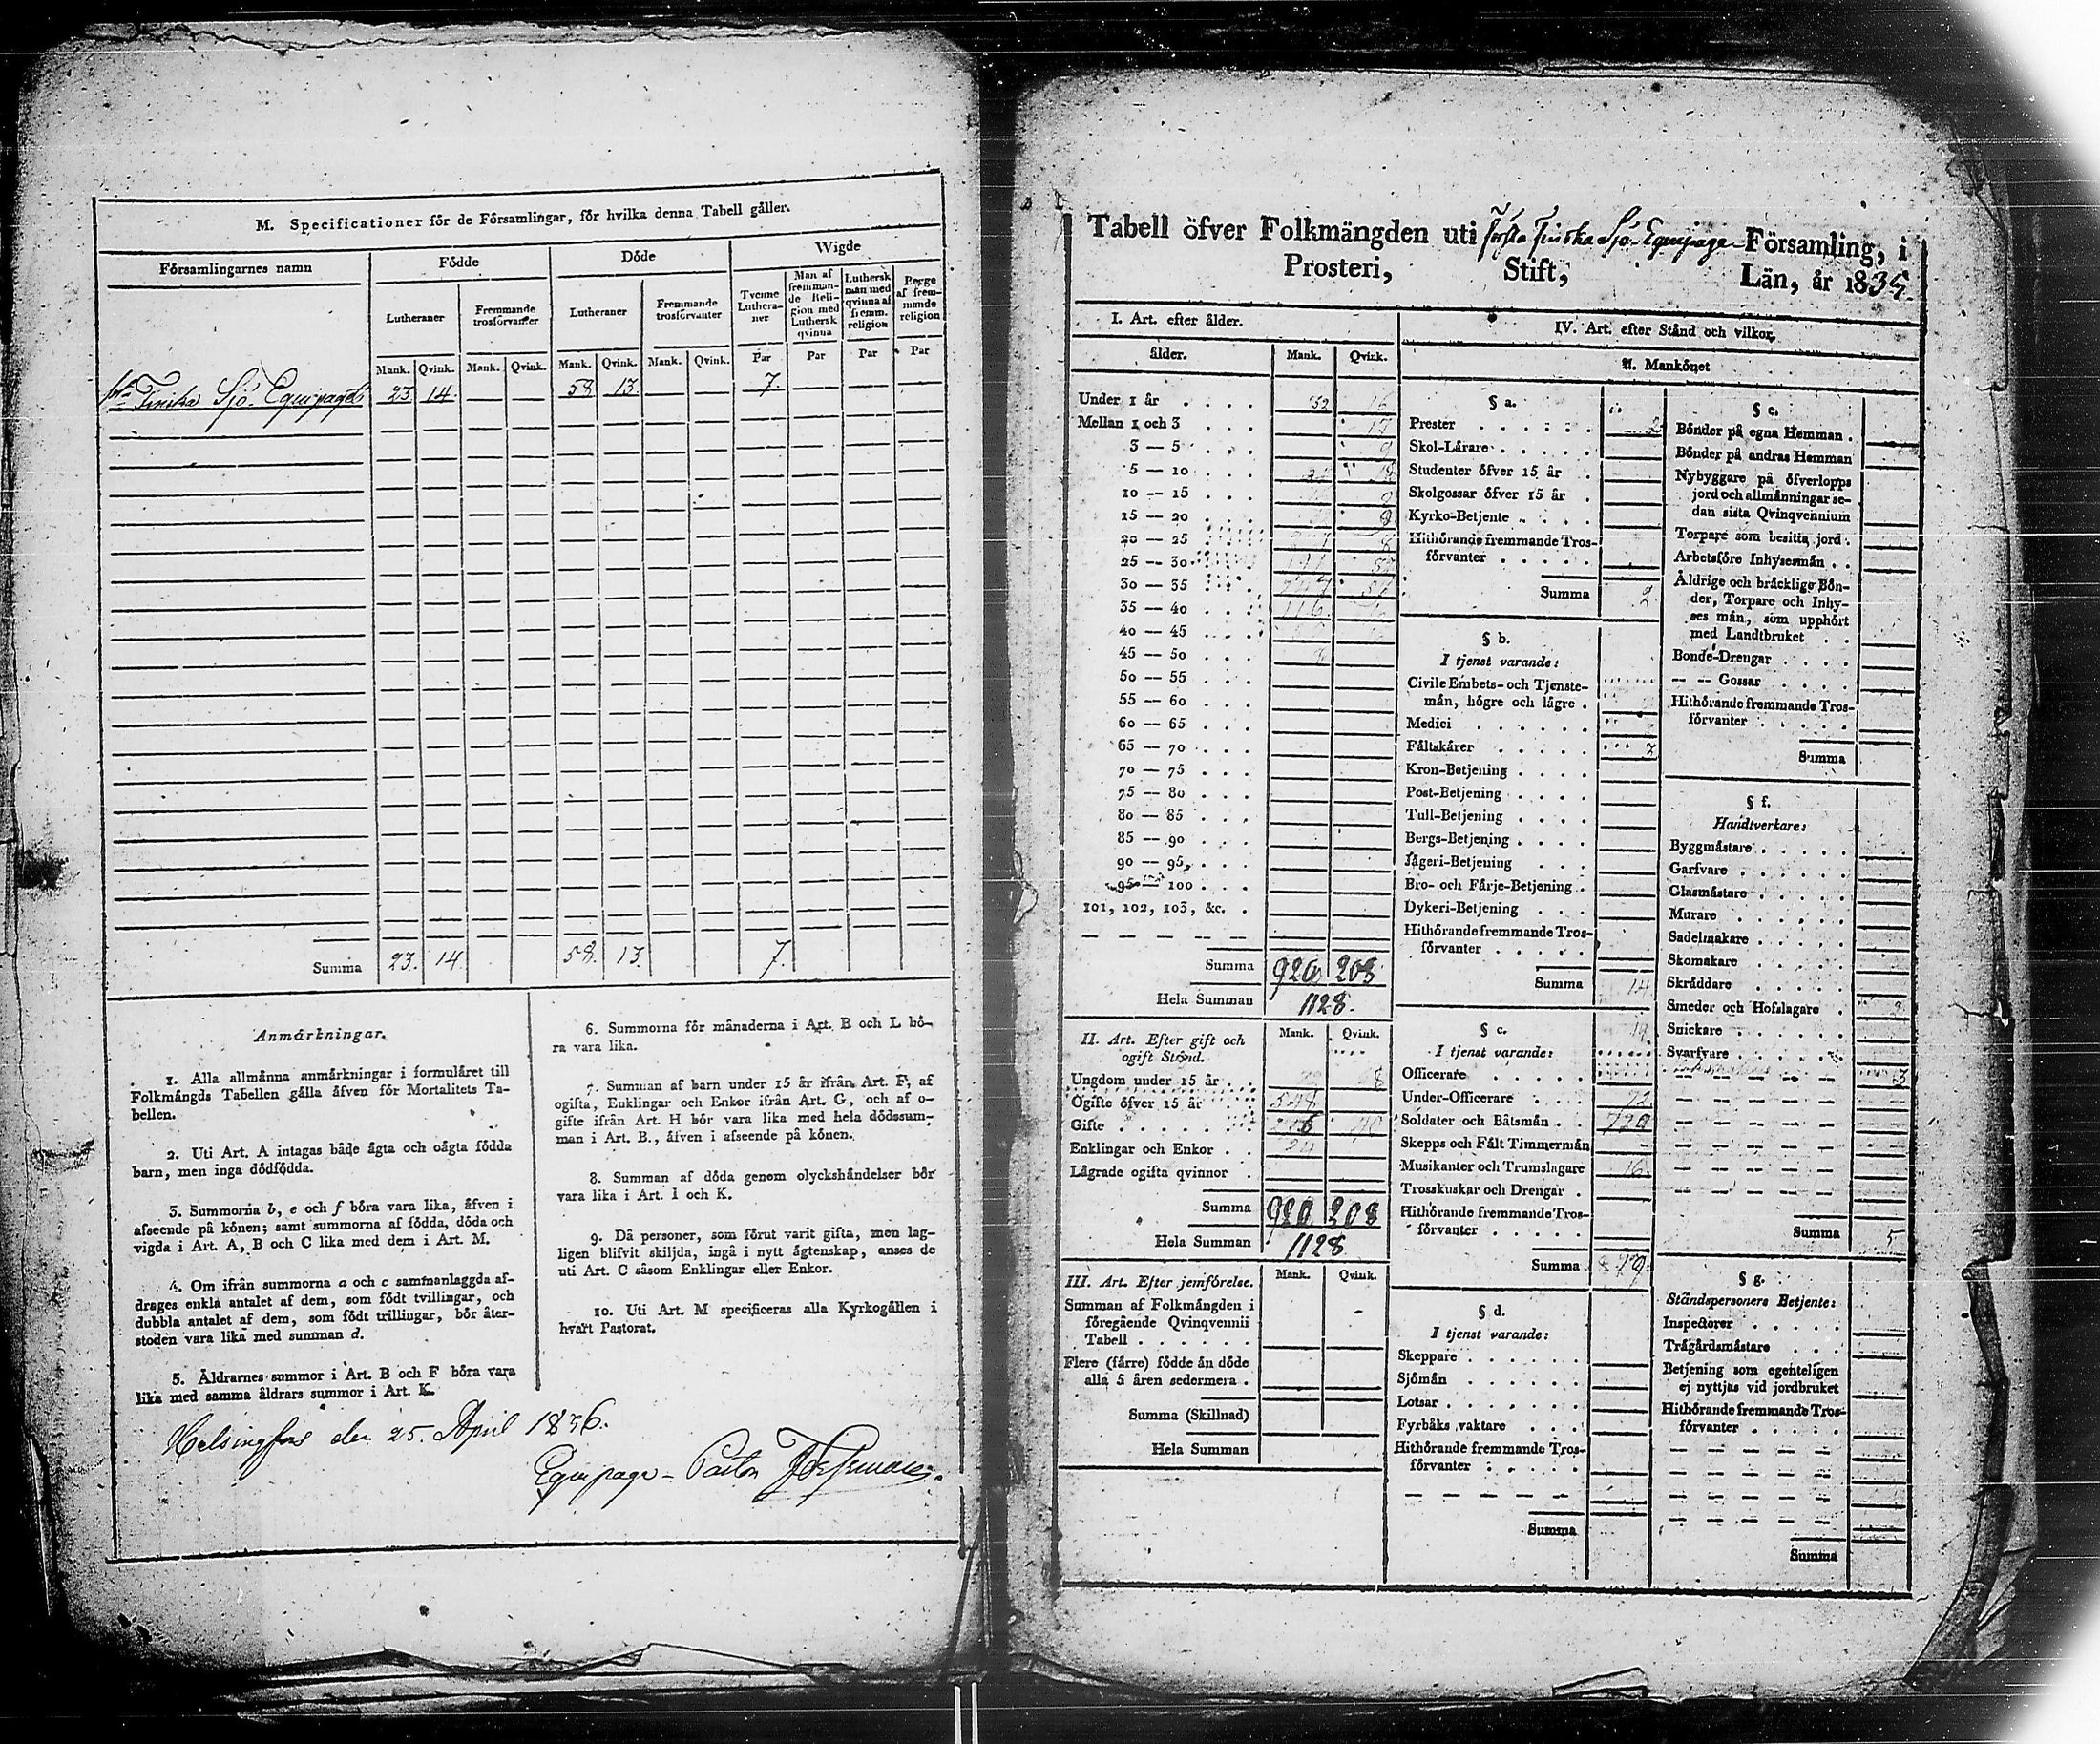 M. Specificationer för de Församlingar, för hvilka denna Tabell gäller.
Församlingarnes namn
Födde
Döde
Wigde
Lutheraner
Fremmande trosförvanter
Lutheraner
Fremmande trosförvanter
Tvenne Lutheraner
Man af fremmande Religion med Luthersk qvinna
Luthersk man med qvinna af fremm. religion
Begge af fremmande religion
Mank. Qvink. Mank. Qvink. Mank. Qvink. Mank. Qvink. Par Par Par Par
1sta Finska Sjö-Equipaget 23 14. 58 13. 7.
Summa 23. 14. 58. 13. 7.
Anmärkningar.
1. Alla allmänna anmärkningar i formuläret till
Folkmängds Tabellen gälla äfven för Mortalitets Ta-
bellen.
2. Uti Art. A intagas både ägta och oägta födda
barn, men inga dödfödda.
3. Summorna b, e och f böra vara lika, äfven i
afseende på könen; samt summorna af födda, döda och
vigda i Art. A, B och C lika med dem i Art. M.
4. Om ifrån summorna a och c sammanlaggda af-
drages enkla antalet af dem, som födt tvillingar, och
dubbla antalet af dem, som födt trillingar, bör åter-
stoden vara lika med summan d.
5. Åldrarnes summor i Art. B och F böra vara
lika med samma åldrars summor i Art. K.
6. Summorna för månaderna i Art. B och L bö-
ra vara lika.
7. Summan af barn under 15 år ifrån Art. F, af
ogifta, Enklingar och Enkor ifrån Art. G, och af o-
gifte ifrån Art. H bör vara lika med hela dödssum-
man i Art. B., äfven i afseende på könen.
8. Summan af döda genom olyckshändelser bör
vara lika i Art. I och K.
9. Då personer, som förut varit gifta, men lag-
ligen blifvit skiljda, ingå i nytt ägtenskap, anses de
uti Art. C såsom Enklingar eller Enkor.
10. Uti Art. M specificeras alla Kyrkogällen i
hvart Pastorat.
Helsingfors den 25. April 1836.
Equipage-Pastor
Tabell öfver Folkmängden uti Första Finska Sjö-Equipage Församling, i
Prosteri, Stift, Län, år 1835.
I. Art. efter ålder.
ålder. Mank. Qvink.
Under 1 år 16
Mellan 1 och 3
3 — 5
5 — 10
10 — 15
15 — 20 8
20 — 25 8
25 — 30
30 — 35
35 — 40 116
40 — 45
45 — 50
50 — 55
55 — 60
60 — 65
65 — 70
70 — 75
75 — 80
80 — 85
85 — 90
90 — 95
95 — 100
101, 102, 103, &c.
Summa 920 208
Hela Summan 1128.
II. Art. Efter gift och
ogift Stånd.
Mank. Qvink.
Ungdom under 15 år
Ogifte öfver 15 år 548
Gifte
Enklingar och Enkor
Lägrade ogifta qvinnor
Summa 920 208
Hela Summan 1128
III. Art. Efter jemförelse. Mank. Qvink.
Summan af Folkmängden i
föregående Qvinqvennii
Tabell
Flere (färre) födde än döde
alla 5 åren sedermera
Summa (Skillnad)
Hela Summan
IV. Art. efter Stånd och vilkor.
A. Mankönet
§ a.
Prester 2
Skol-Lärare
Studenter öfver 15 år
Skolgossar öfver 15 år
Kyrko-Betjente
Hithörande fremmande Tros-
förvanter
Summa 2
§ b.
I tjenst varande:
Civile Embets- och Tjenste-
män, högre och lägre
Medici
Fältskärer
Kron-Betjening
Post-Betjening
Tull-Betjening
Bergs-Betjening
Jägeri-Betjening
Bro- och Färje-Betjening
Dykeri-Betjening
Hithörande fremmande Tros-
förvanter
Summa 14
§ c.
I tjenst varande:
Officerare
Under-Officerare 72
Soldater och Båtsmän 720
Skepps och Fält Timmermän
Musikanter och Trumslagare 16
Trosskuskar och Drengar
Hithörande fremmande Tros-
förvanter
Summa
§ d.
I tjenst varande:
Skeppare
Sjömän
Lotsar
Fyrbåks vaktare
Hithörande fremmande Tros-
förvanter
Summa
§ e.
Bönder på egna Hemman
Bönder på andras Hemman
Nybyggare på öfverlopps
jord och allmänningar se-
dan sista Qvinqvennium
Torpare som besitta jord
Arbetsföre Inhysesmän
Åldrige och bräcklige Bön-
der, Torpare och Inhy-
ses män, som upphört
med Landtbruket
Bonde-Drengar
— — Gossar
Hithörande fremmande Tros-
förvanter
Summa
§ f.
Handtverkare:
Byggmästare
Garfvare
Glasmästare
Murare
Sadelmakare
Skomakare
Skräddare
Smeder och Hofslagare
Snickare
Svarfvare
3
Summa 5
§ g.
Ståndspersoners Betjente:
Inspectorer
Trägårdsmästare
Betjening som egenteligen
ej nyttjas vid jordbruket
Hithörande fremmande Tros-
förvanter
Summa